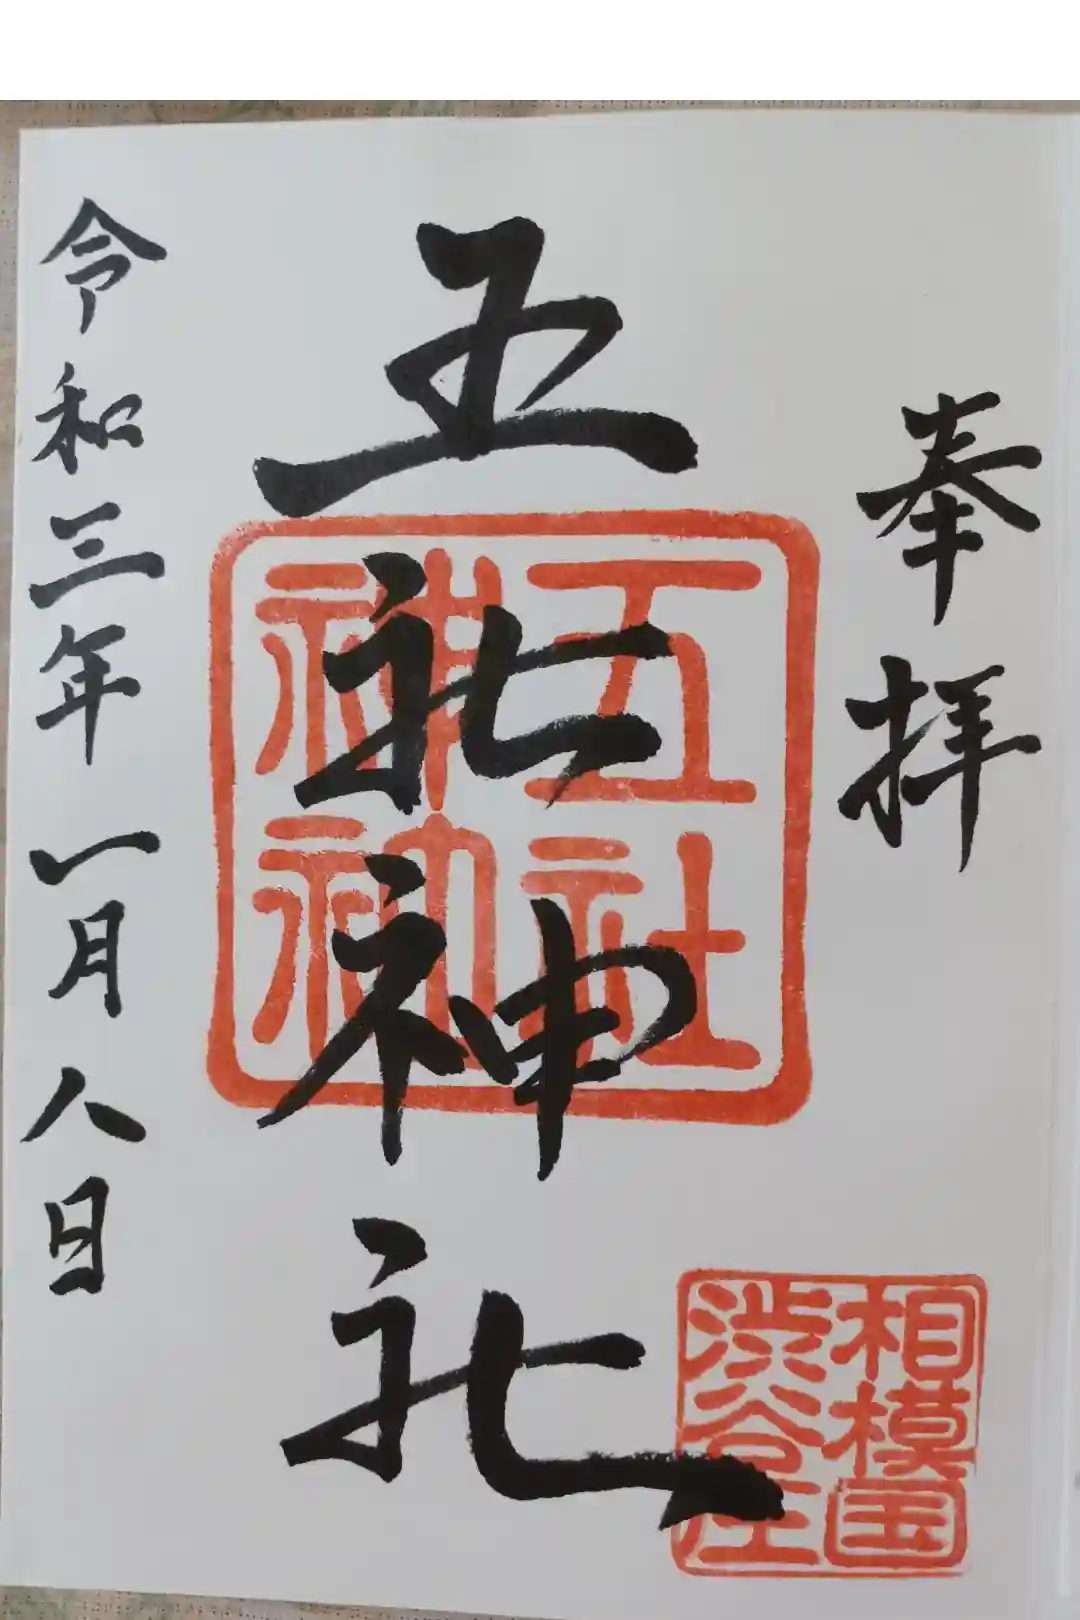 奉拝
五社神社
五社
神社
令和三年一月八日
相模国
渋谷庄